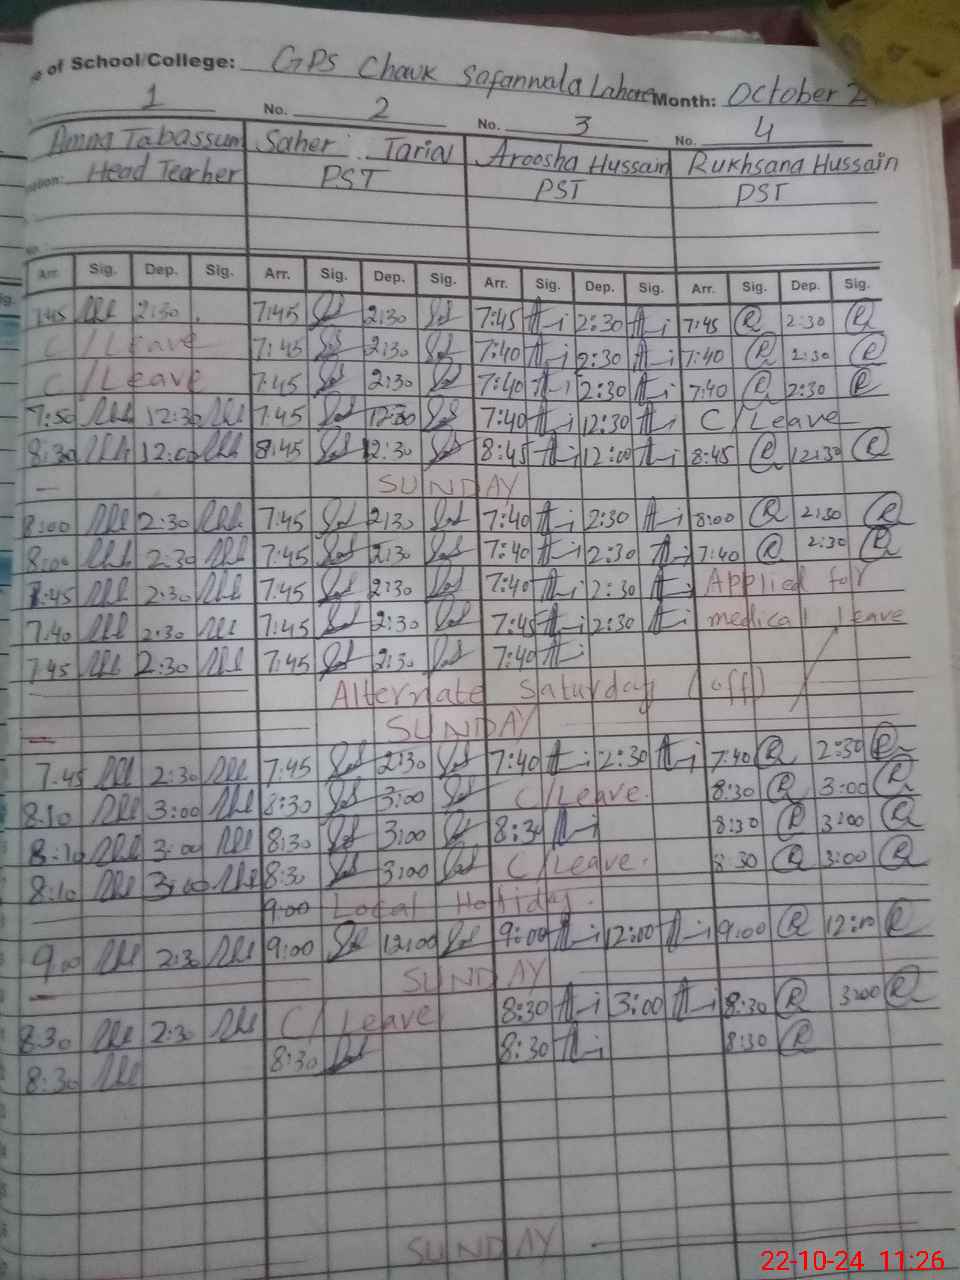 of School/College: GPS Chowk Safanwala Lahore Month: October
1 No. 2 No. 3 No. 4
Amna Tabassum Saher Tariq Aroosha Hussain Rukhsana Hussain
Head Teacher PST PST PST
Arr. Sig. Dep. Sig. Arr. Sig. Dep. Sig. Arr. Sig. Dep. Sig. Arr. Sig. Dep. Sig.
7:45 2:30 7:45 2:30 7:45 2:30 7:45 2:30
C/Leave 7:45 2:30 7:40 2:30 7:40 2:30
C/Leave 7:45 2:30 7:40 2:30 7:40 2:30
7:50 12:30 7:45 12:30 7:40 12:30 C/Leave
8:30 12:00 8:45 12:30 8:45 12:00 8:45 12:30
SUNDAY
8:00 2:30 7:45 2:30 7:40 2:30 8:00 2:30
8:00 2:30 7:45 2:30 7:40 2:30 7:40 2:30
7:45 2:30 7:45 2:30 7:40 2:30 Applied for
7:40 2:30 7:45 2:30 7:45 2:30 medical leave
7:45 2:30 7:45 2:30 7:40
Alternate Saturday (off)
SUNDAY
7:45 2:30 7:45 2:30 7:40 2:30 7:40 2:30
8:10 3:00 8:30 3:00 C/Leave. 8:30 3:00
8:10 3:00 8:30 3:00 8:30 8:30 3:00
8:10 3:00 8:30 3:00 C/Leave. 8:30 3:00
9:00 Local Holiday.
9:00 2:30 9:00 12:00 9:00 12:00 9:00 12:00
SUNDAY
8:30 2:30 C/Leave 8:30 3:00 8:30 3:00
8:30 8:30 8:30 8:30
SUNDAY
22-10-24 11:26